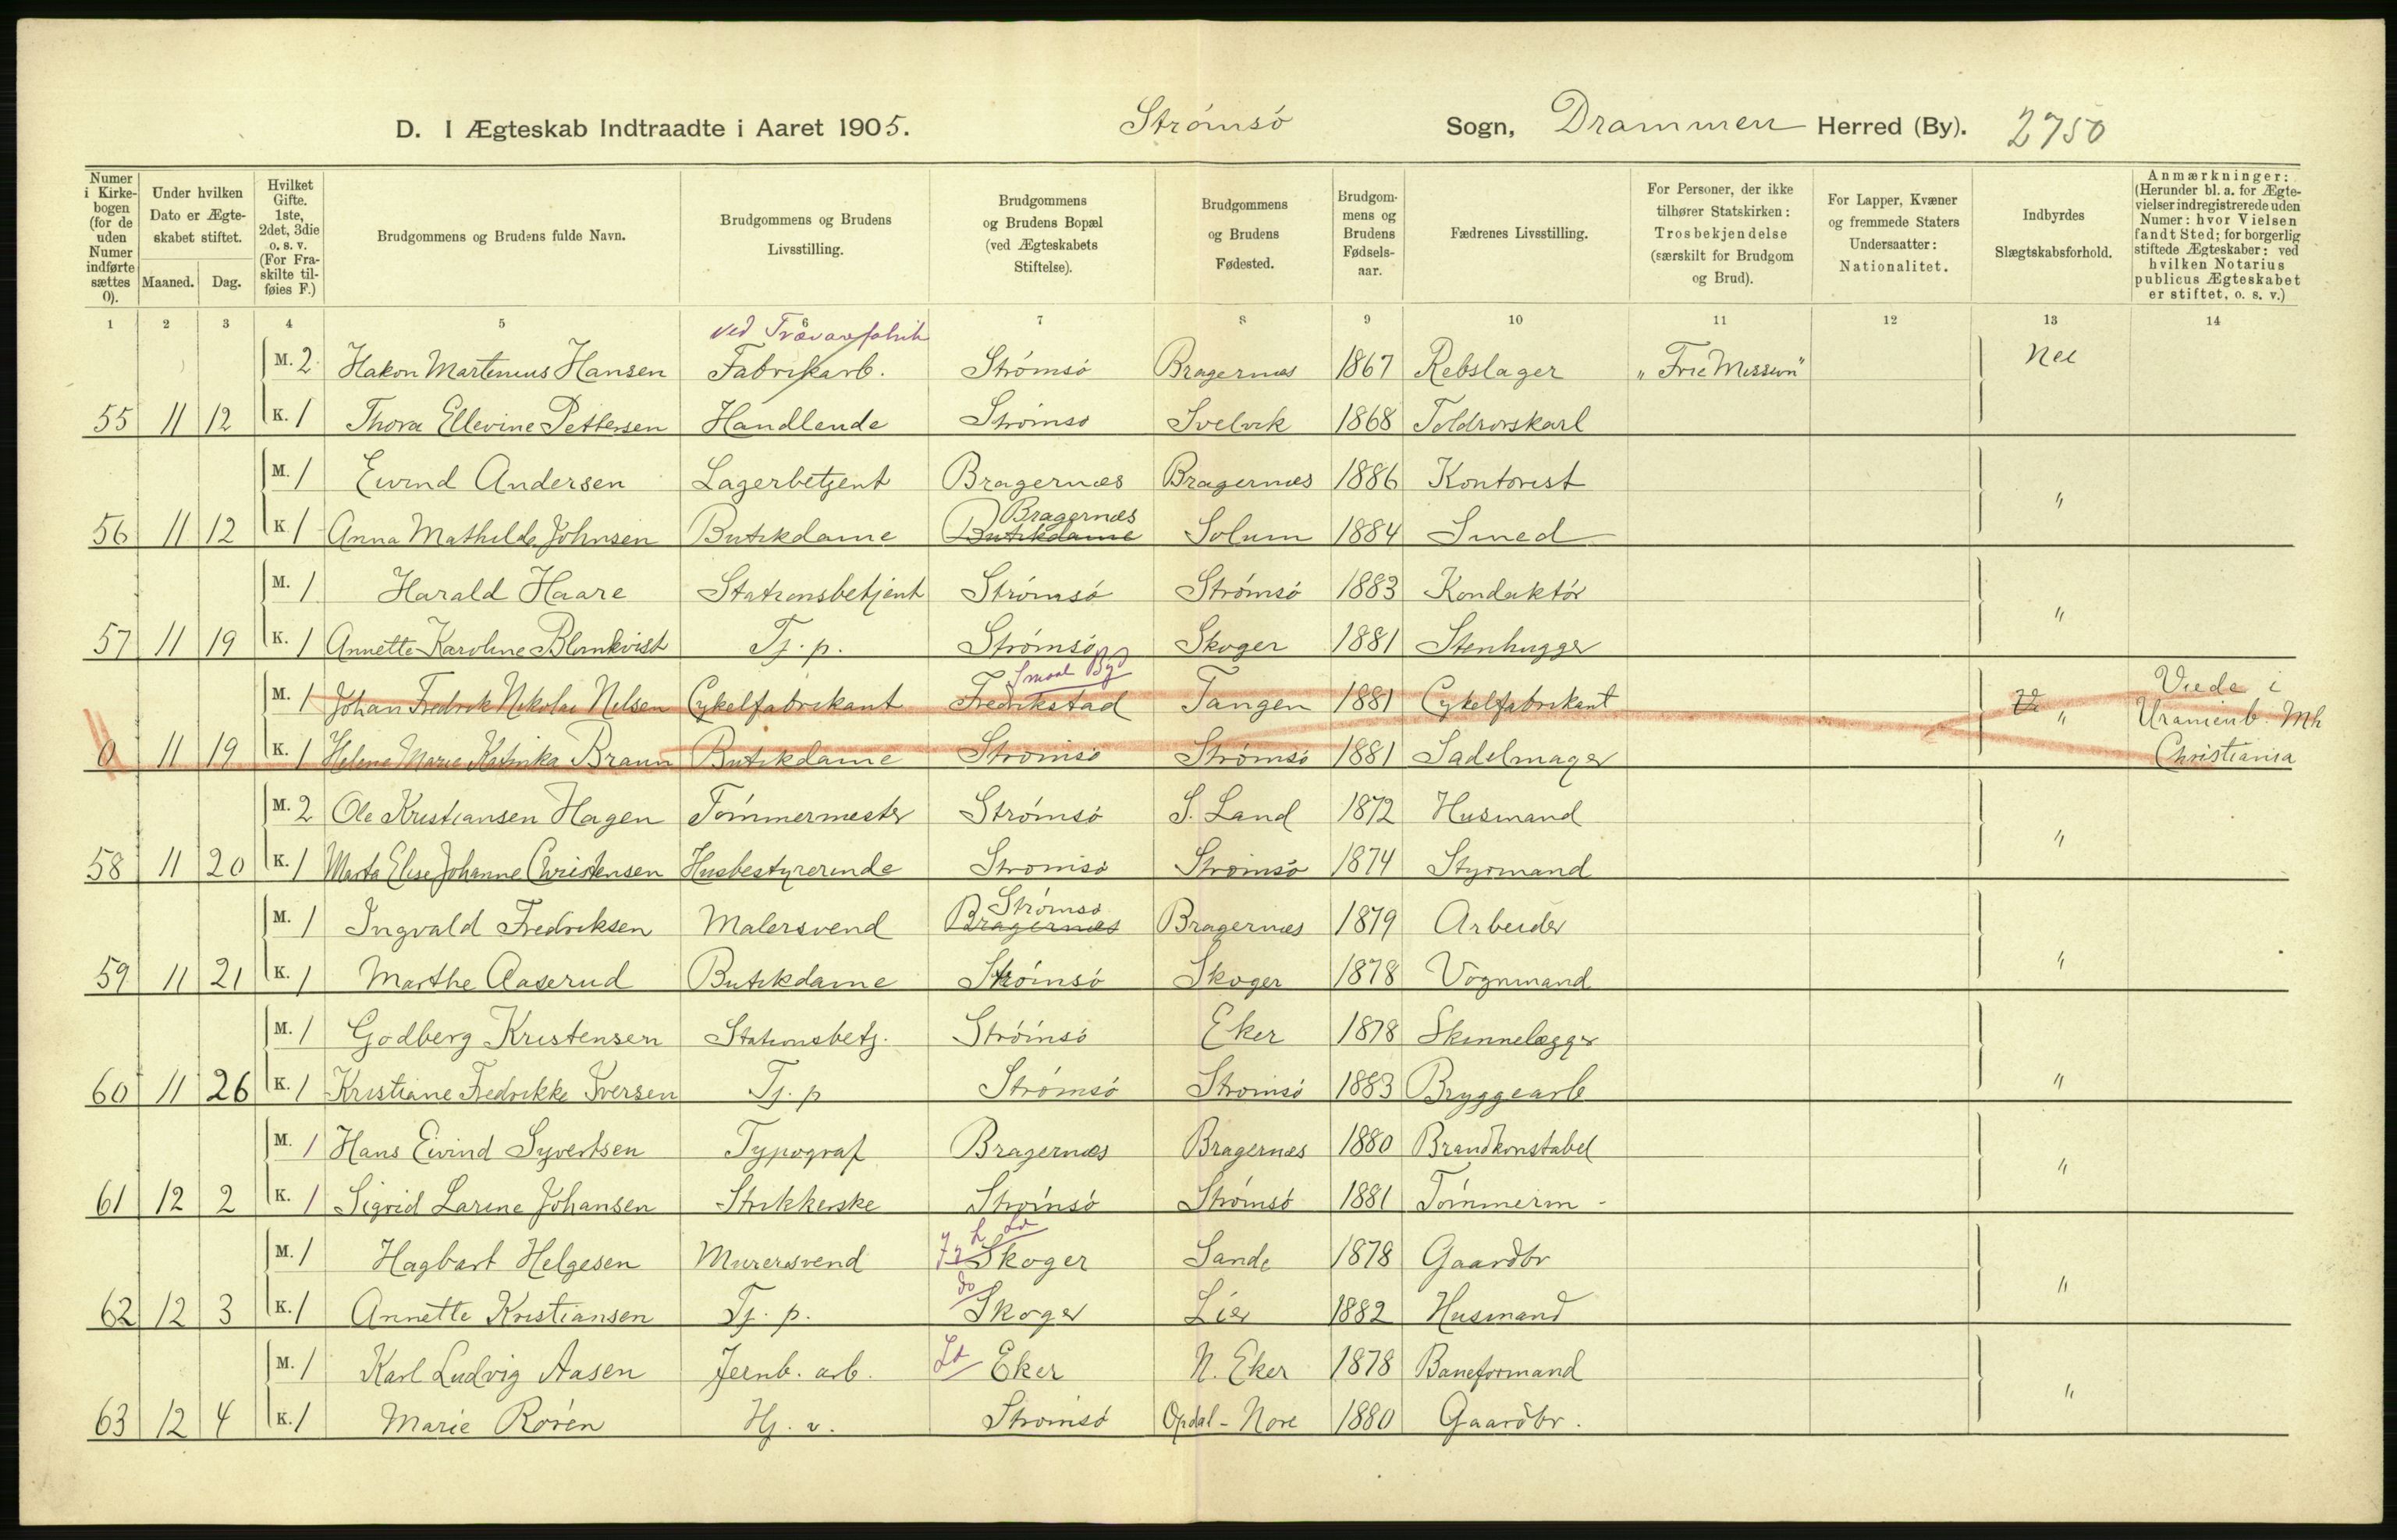 D. I Ægteskab Indtraadte i Aaret 1905. Strømsö Sogn, Drammen Herred (By). 2750
Numer i Kirkebogen (for de uden Numer indførte sættes 0).
Under hvilken Dato er Ægteskabet stiftet.
Maaned. Dag.
Hvilket Gifte. 1ste, 2det, 3die o. s. v. (For Fraskilte tilføies F.)
Brudgommens og Brudens fulde Navn.
Brudgommens og Brudens Livsstilling.
Brudgommens og Brudens Bopæl (ved Ægteskabets Stiftelse).
Brudgommens og Brudens Fødested.
Brudgommens og Brudens Fødselsaar.
Fædrenes Livsstilling.
For Personer, der ikke tilhører Statskirken: Trosbekjendelse (særskilt for Brudgom og Brud).
For Lapper, Kvæner og fremmede Staters Undersaatter: Nationalitet.
Indbyrdes Slægtskabsforhold.
Anmærkninger: (Herunder bl. a. for Ægtevielser indregistrerede uden Numer: hvor Vielsen fandt Sted; for borgerlig stiftede Ægteskaber: ved hvilken Notarius publicus Ægteskabet er stiftet, o. s. v.)
1 2 3 4 5 6 7 8 9 10 11 12 13 14
ved Trævarefabrik
M. 2 Hakon Martenius Hansen Fabrikarb. Strømsö Bragernæs 1867 Rebslager "Frie Mission" Nei
55 11 12 K. 1 Thora Ellevine Pettersen Handlende Strømsö Svelvik 1868 Toldrorskarl
M. 1 Eivind Andersen Lagerbetjent Bragernæs Bragernæs 1886 Kontorist "
Bragernæs
56 11 12 K 1 Anna Mathilde Johnsen Butikdame Butikdame Solum 1884 Smed
M. 1 Harald Haare Stationsbetjent Strømsö Strømsö 1883 Konduktör "
57 11 19 K. 1 Annette Karoline Blomkvist Tj. p. Strømsö Skoger 1881 Stenhugger
Smaal By
M. 1 Johan Fredrik Nikolai Nilsen Cykelfabrikant Fredrikstad Tangen 1881 Cykelfabrikant " Viede i Uranienb. Mh
0 11 19 K. 1 Helene Marie Katinka Braun Butikdame Strømsö Strømsö 1881 Sadelmager Christiania
M. 2 Ole Kristiansen Hagen Tömmermester Strømsö S. Land 1872 Husmand "
58 11 20 K. 1 Marta Elise Johanne Christensen Husbestyrerinde Strømsö Strømsö 1874 Styrmand
Strømsö
M. 1 Ingvald Fredriksen Malersvend Bragernæs Bragernæs 1879 Arbeider
59 11 21 K. 1 Marthe Aaserud Butikdame Strømsö Skoger 1878 Vognmand "
M. 1 Godberg Kristensen Stationsbetj. Strömsö Eker 1878 Skinnelægger
60 11 26 K. 1 Kristiane Fredrikke Iversen Tj. p Strømsö Strømsö 1883 Bryggearb "
M. 1 Hans Eivind Syvertsen Typograf Bragernæs Bragernæs 1880 Brandkonstabel "
61 12 2 K. 1 Sigrid Larine Johansen Strikkerske Strömsö Strömsö 1881 Tömmerm -
M. 1 Hagbart Helgesen Murersvend Skoger Sande 1878 Gaardbr "
do
62 12 3 K. 1 Annette Kristiansen Tj. p. Skoger Lier 1882 Husmand
M. 1 Karl Ludvig Aasen Jernb. arb. Ld Eker N. Eker 1878 Baneformand "
63 12 4 K. 1 Marie Roren Hj. v. Strømsö Opdal - Nore 1880 Gaardbr.